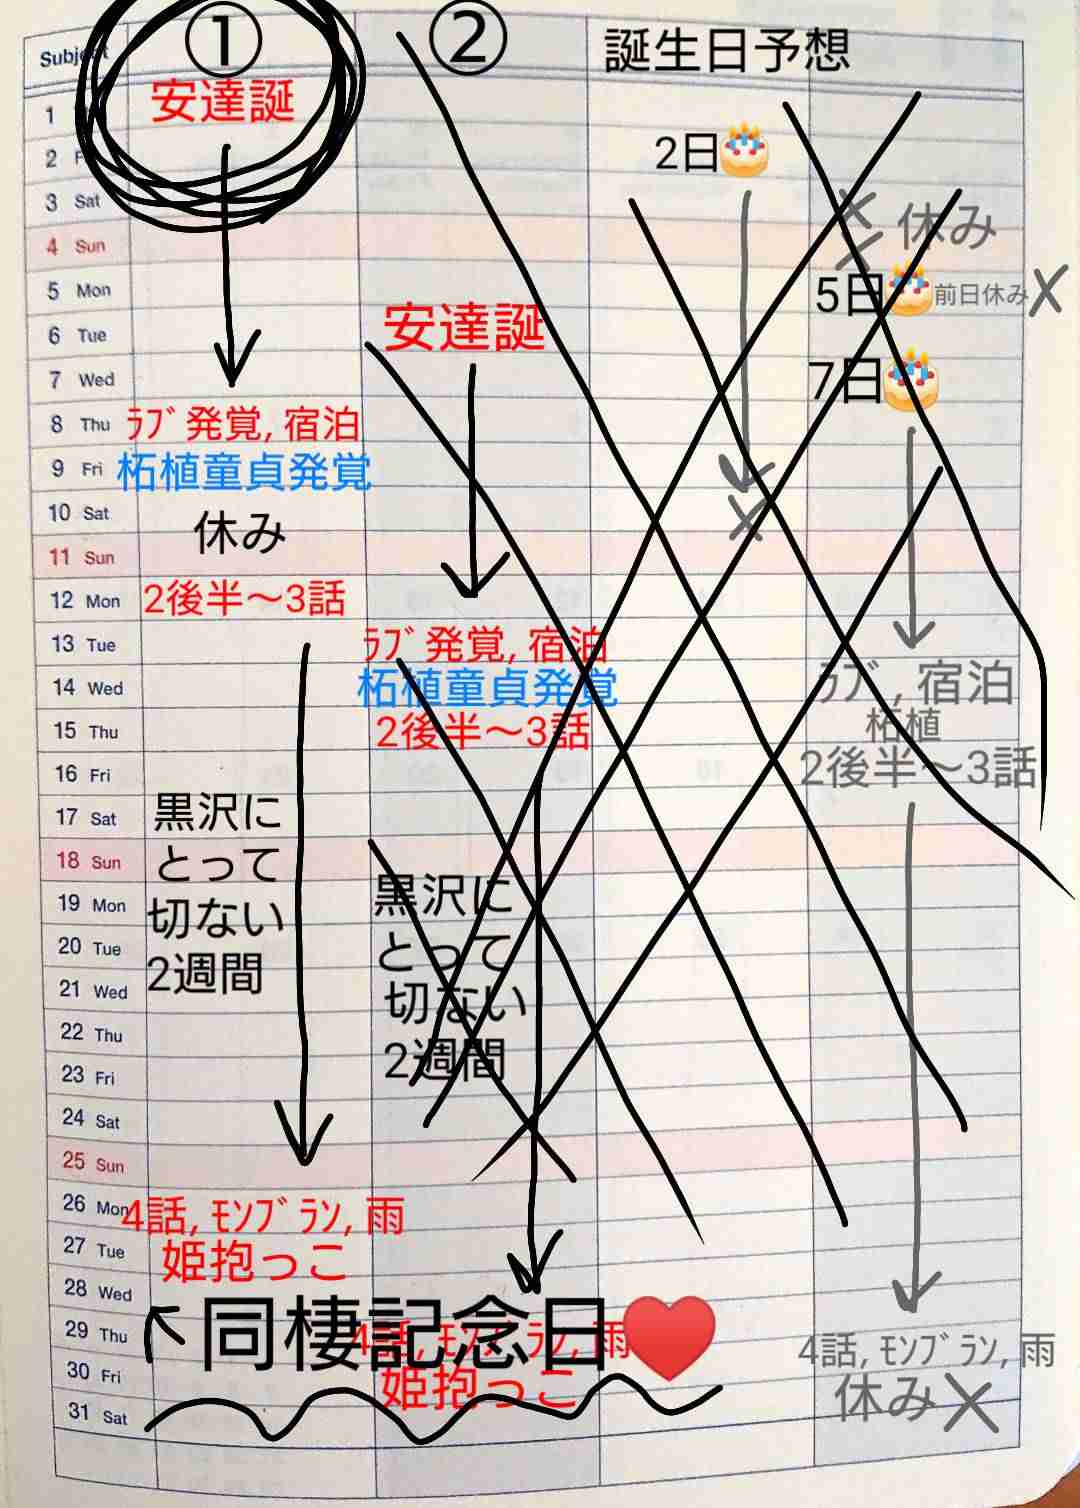 Subject
① ② 誕生日予想
安達誕
2日
休み
5日 前日休み
安達誕
7日
ﾗﾌﾞ発覚, 宿泊
柘植童貞発覚
休み
2後半〜3話
ﾗﾌﾞ発覚, 宿泊
柘植童貞発覚
2後半〜3話
ﾗﾌﾞ, 宿泊
柘植
2後半〜3話
黒沢に
とって
切ない
2週間
黒沢に
とって
切ない
2週間
4話, ﾓﾝﾌﾞﾗﾝ, 雨
姫抱っこ
同棲記念日
4話, ﾓﾝﾌﾞﾗﾝ, 雨
姫抱っこ
4話, ﾓﾝﾌﾞﾗﾝ, 雨
休み
1
2 F
3 Sat
4 Sun
5 Mon
6 Tue
7 Wed
8 Thu
9 Fri
10 Sat
11 Sun
12 Mon
13 Tue
14 Wed
15 Thu
16 Fri
17 Sat
18 Sun
19 Mon
20 Tue
21 Wed
22 Thu
23 Fri
24 Sat
25 Sun
26 Mon
27 Tue
28 Wed
29 Thu
30 Fri
31 Sat